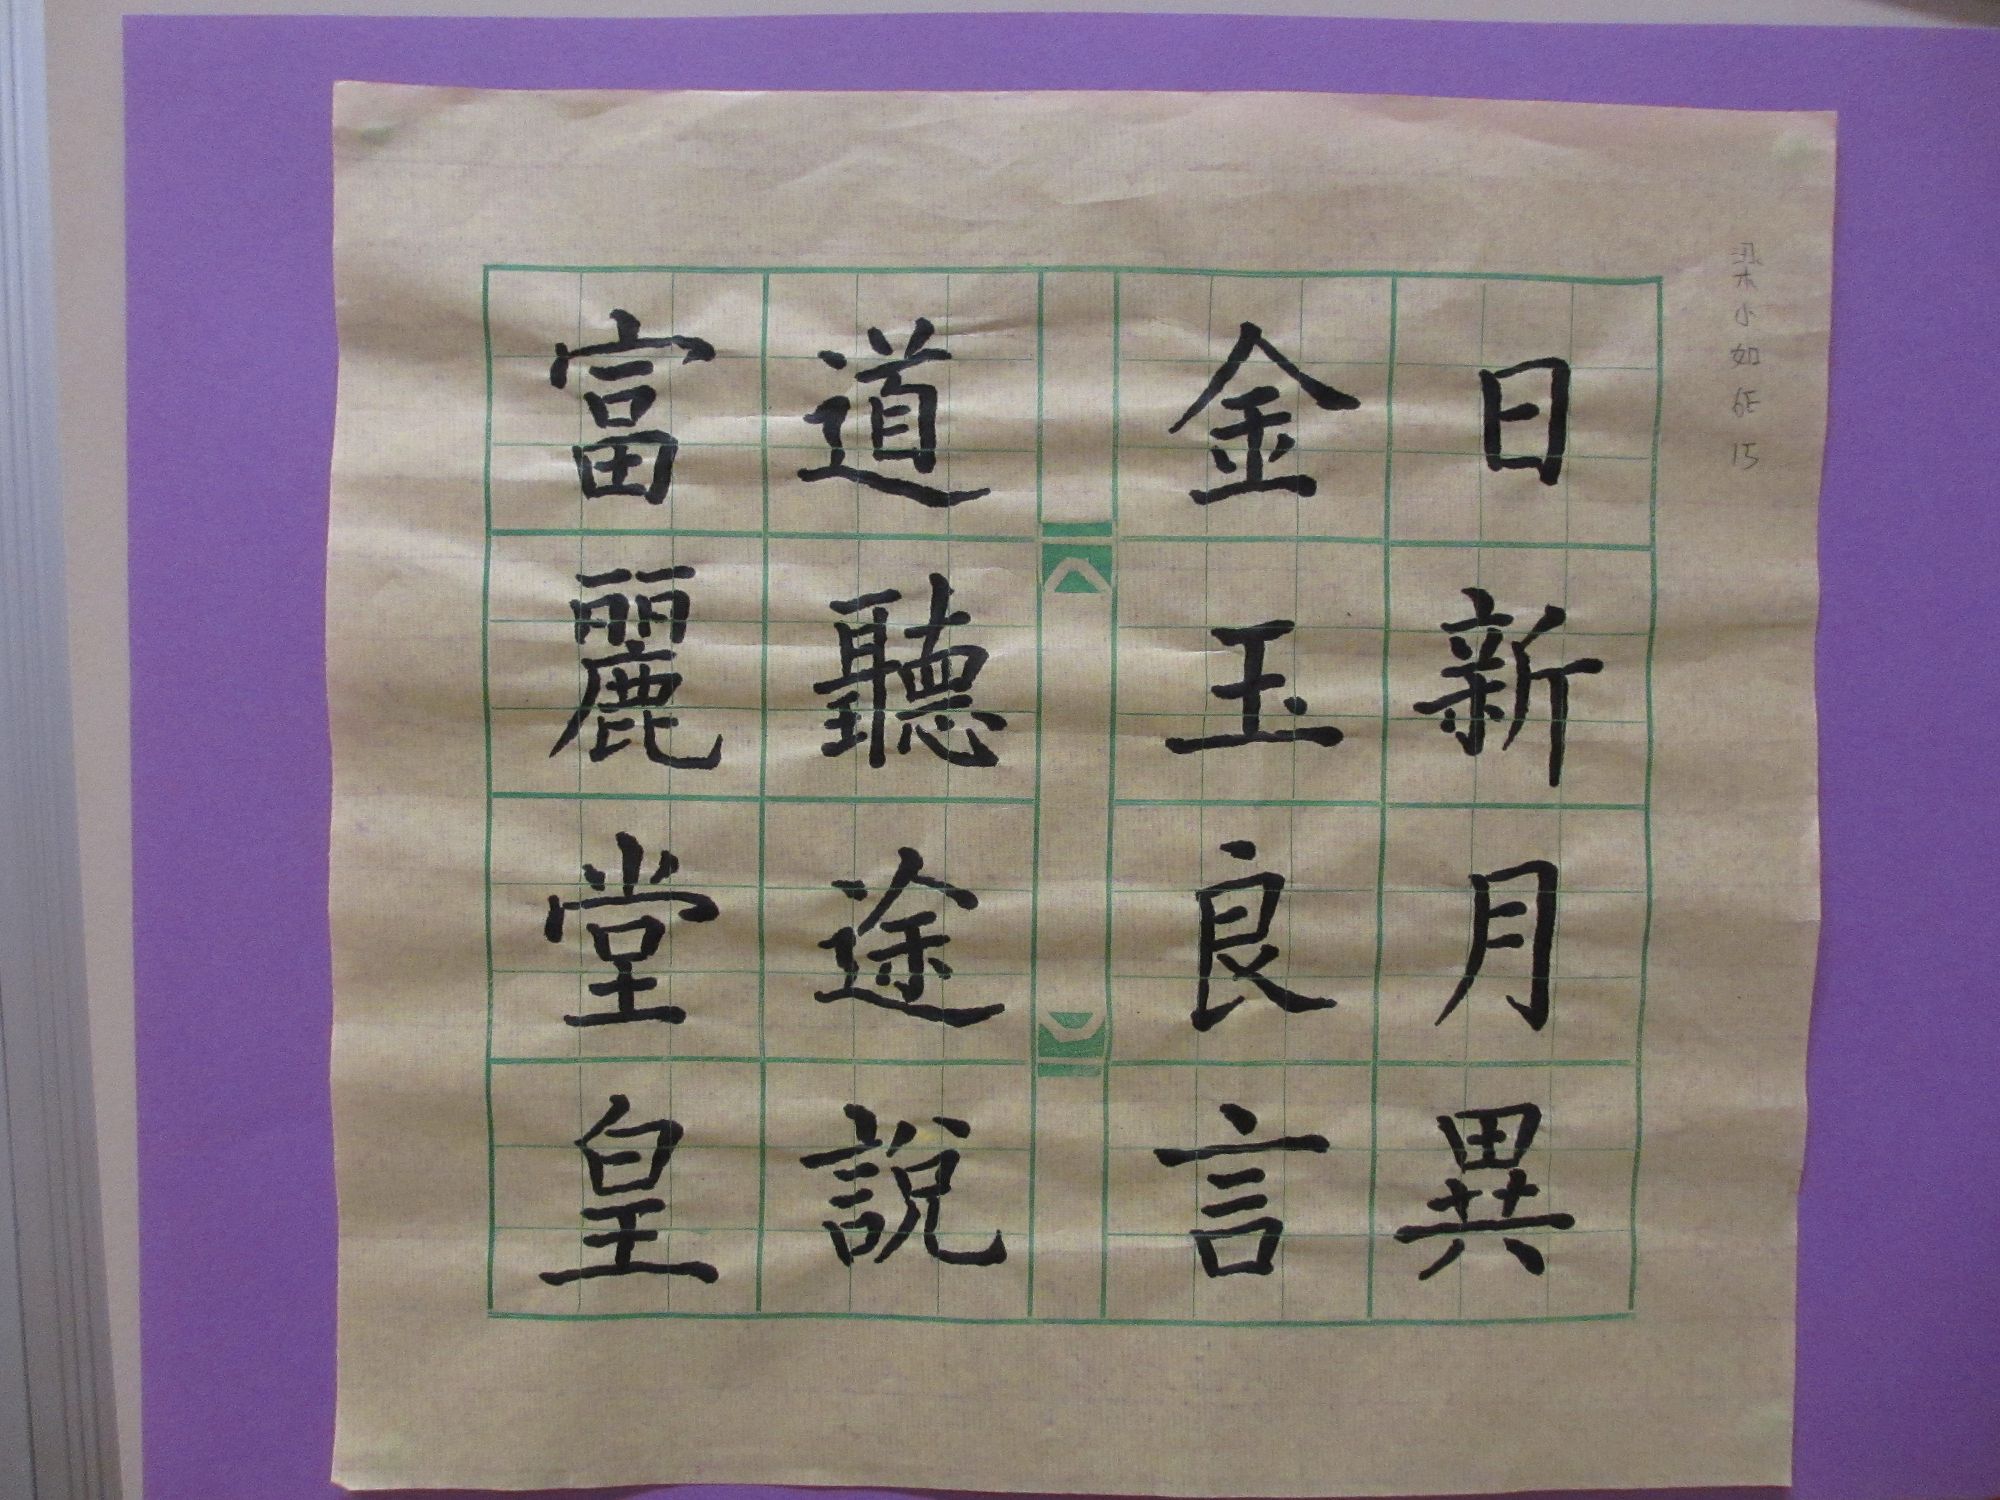 梁小如 6E 15
日新月異
金玉良言
道聽途說
富麗堂皇